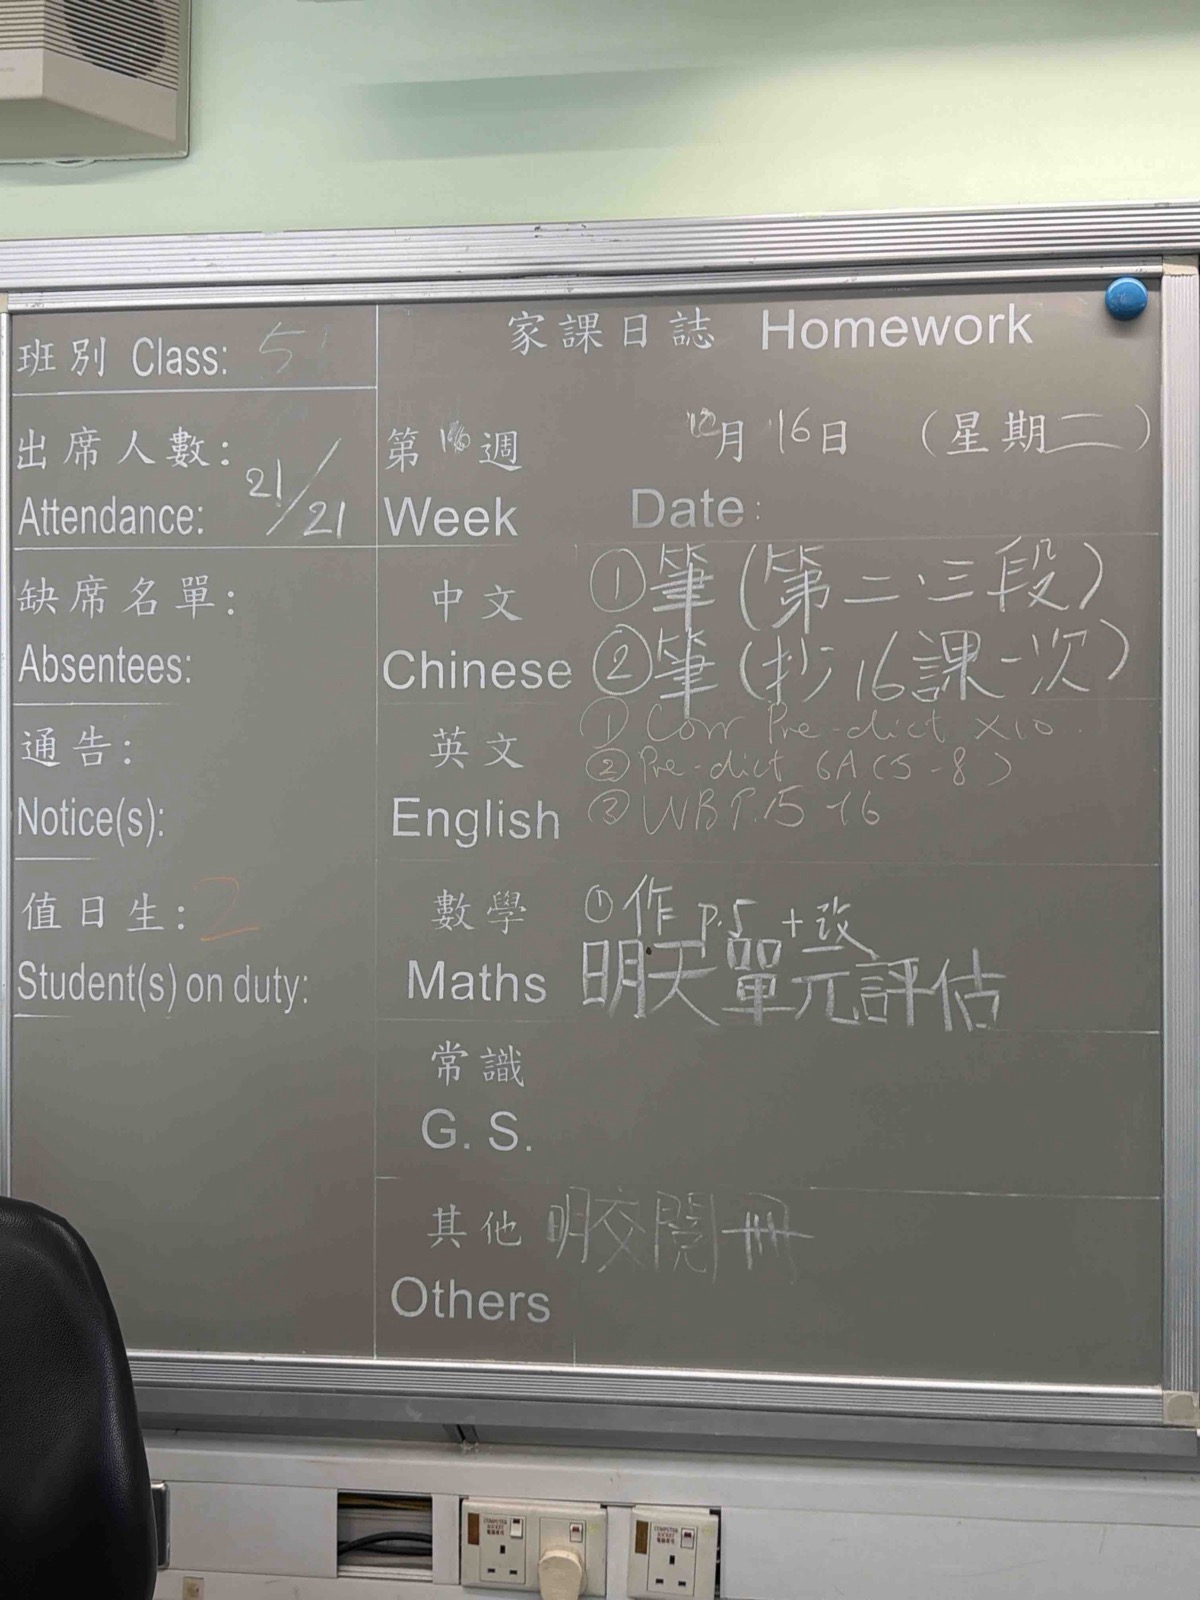 家課日誌 Homework
班別 Class: 5
出席人數:
Attendance: 21/21
第 週
Week
12月16日 (星期二)
Date:
缺席名單:
Absentees:
通告:
Notice(s):
值日生: 2
Student(s) on duty:
中文
Chinese
①筆(第二、三段)
②筆(抄16課一次)
英文
English
① Corr Pre-dict ×10
② Pre-dict 6A (5-8)
③ WB P.15-16
數學
Maths
①作 p.5 +改
明天單元評估
常識
G. S.
其他 明交閱冊
Others
COMPUTER
SOCKET
電腦專用
COMPUTER
SOCKET
電腦專用